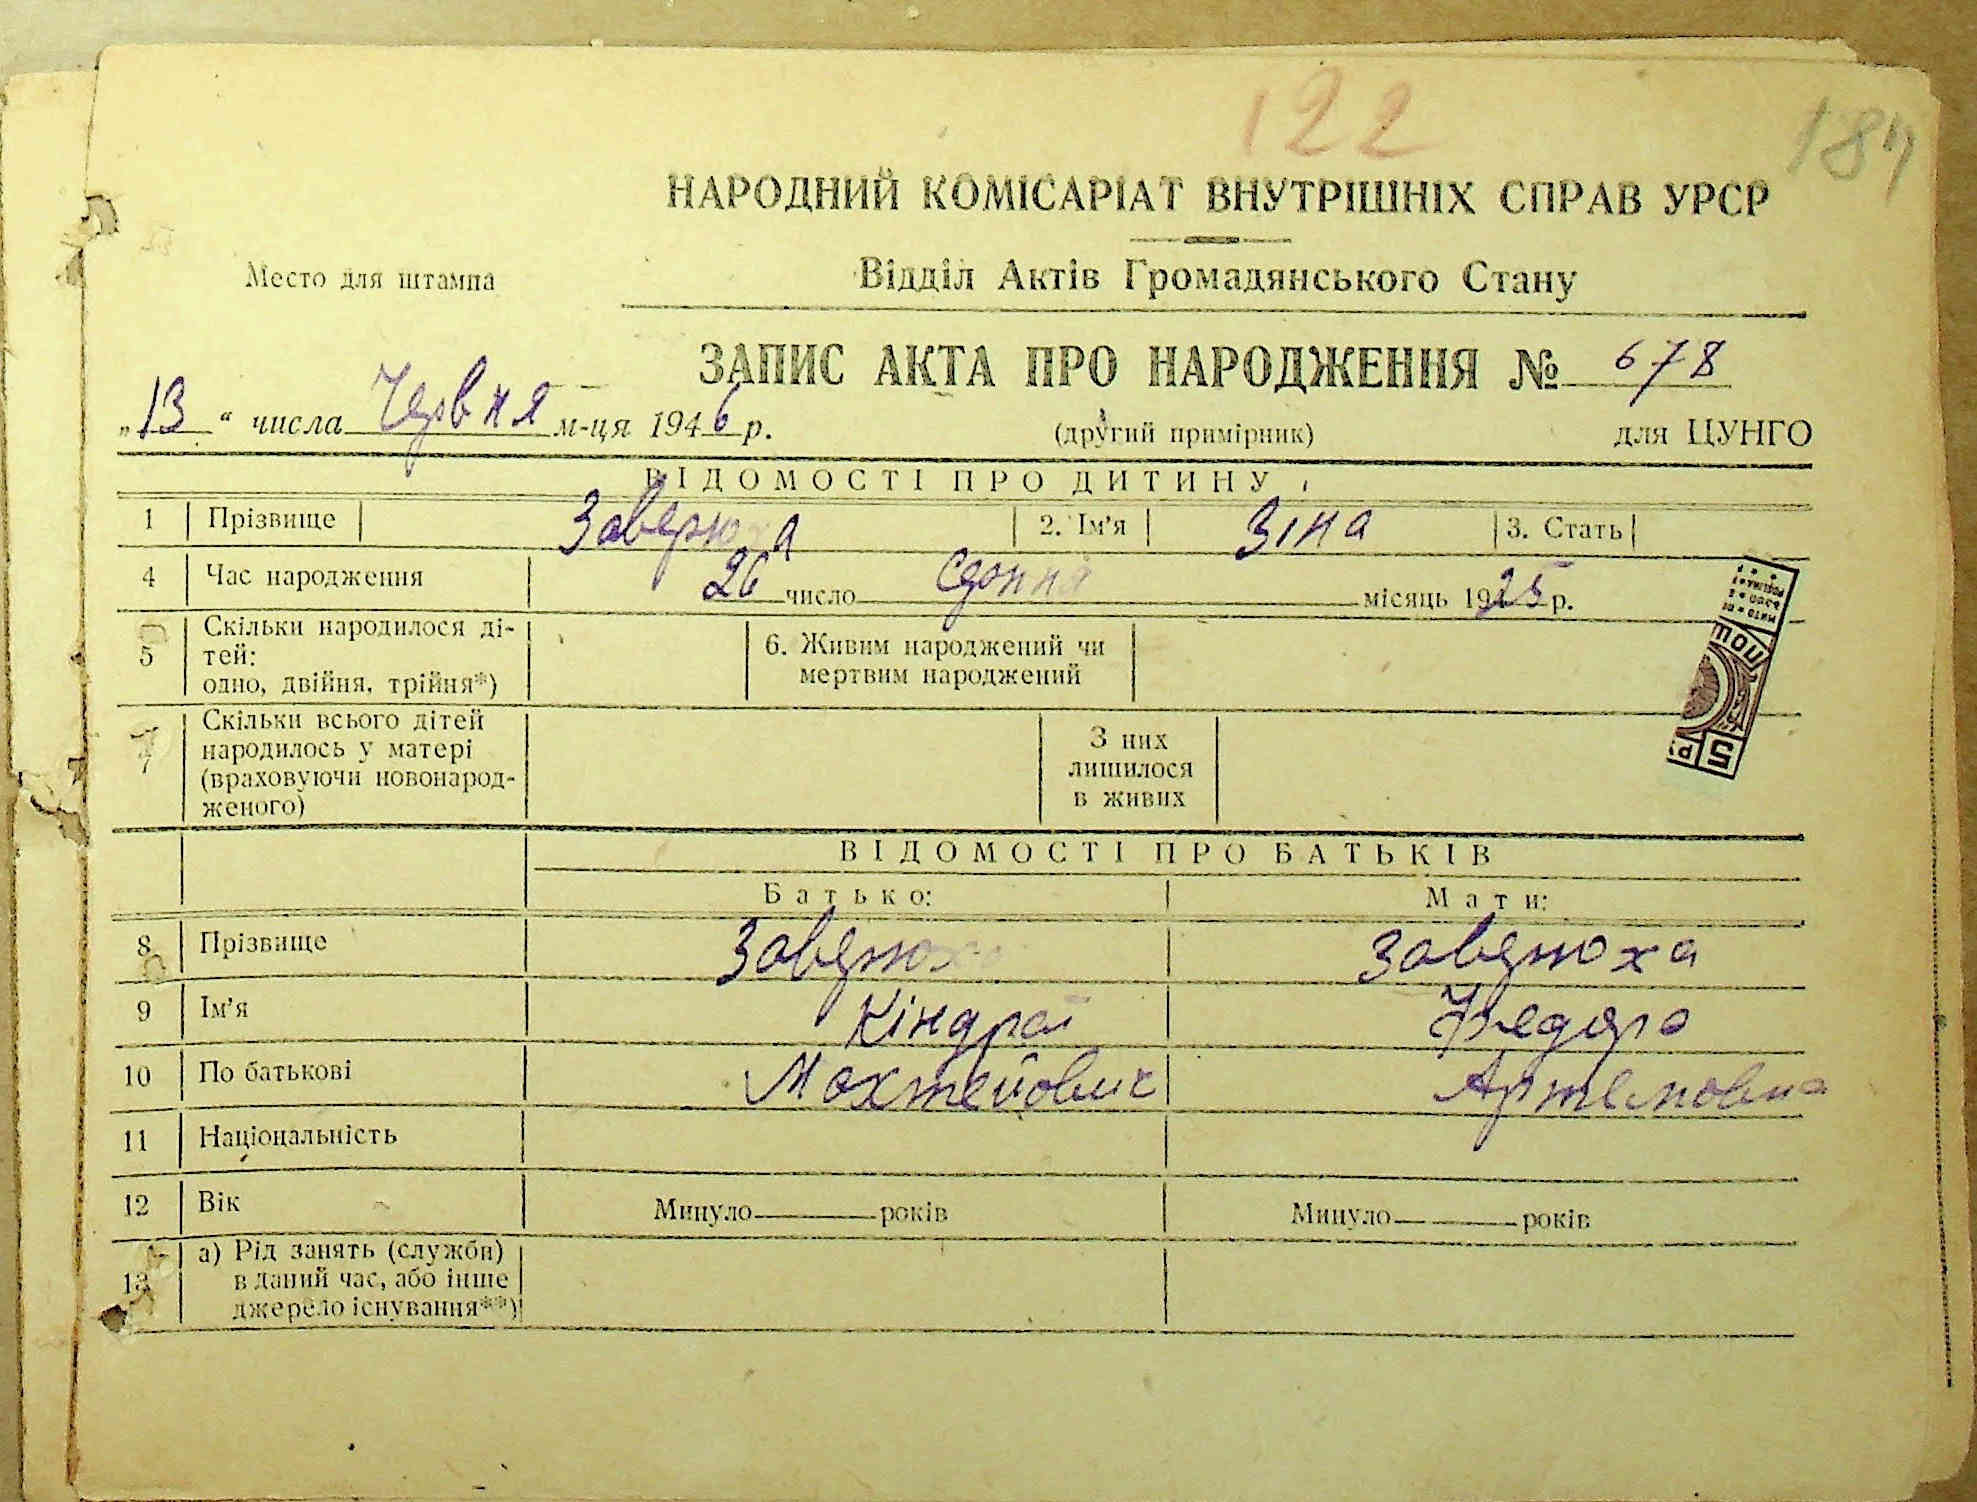 122
187
НАРОДНИЙ КОМІСАРІАТ ВНУТРІШНІХ СПРАВ УРСР
Место для штампа
Відділ Актів Громадянського Стану
ЗАПИС АКТА ПРО НАРОДЖЕННЯ № 678
„13“ числа Червня м-ця 1946 р.
(другий примірник)
для ЦУНГО
ВІДОМОСТІ ПРО ДИТИНУ
1 Прізвище Заверюха 2. Ім'я Зіна 3. Стать
4 Час народження 26 число місяць 1925 р.
5 Скільки народилося ді-
тей:
одно, двійня, трійня*)
6. Живим народжений чи
мертвим народжений
7 Скільки всього дітей
народилось у матері
(враховуючи новонарод-
женого)
З них
лишилося
в живих
5
ВІДОМОСТІ ПРО БАТЬКІВ
Батько: Мати:
8 Прізвище Заверюха Заверюха
9 Ім'я Кіндрат Федора
10 По батькові Мохтейович Артемовна
11 Національність
12 Вік Минуло років Минуло років
13 а) Рід занять (служби)
в даний час, або інше
джерело існування**)